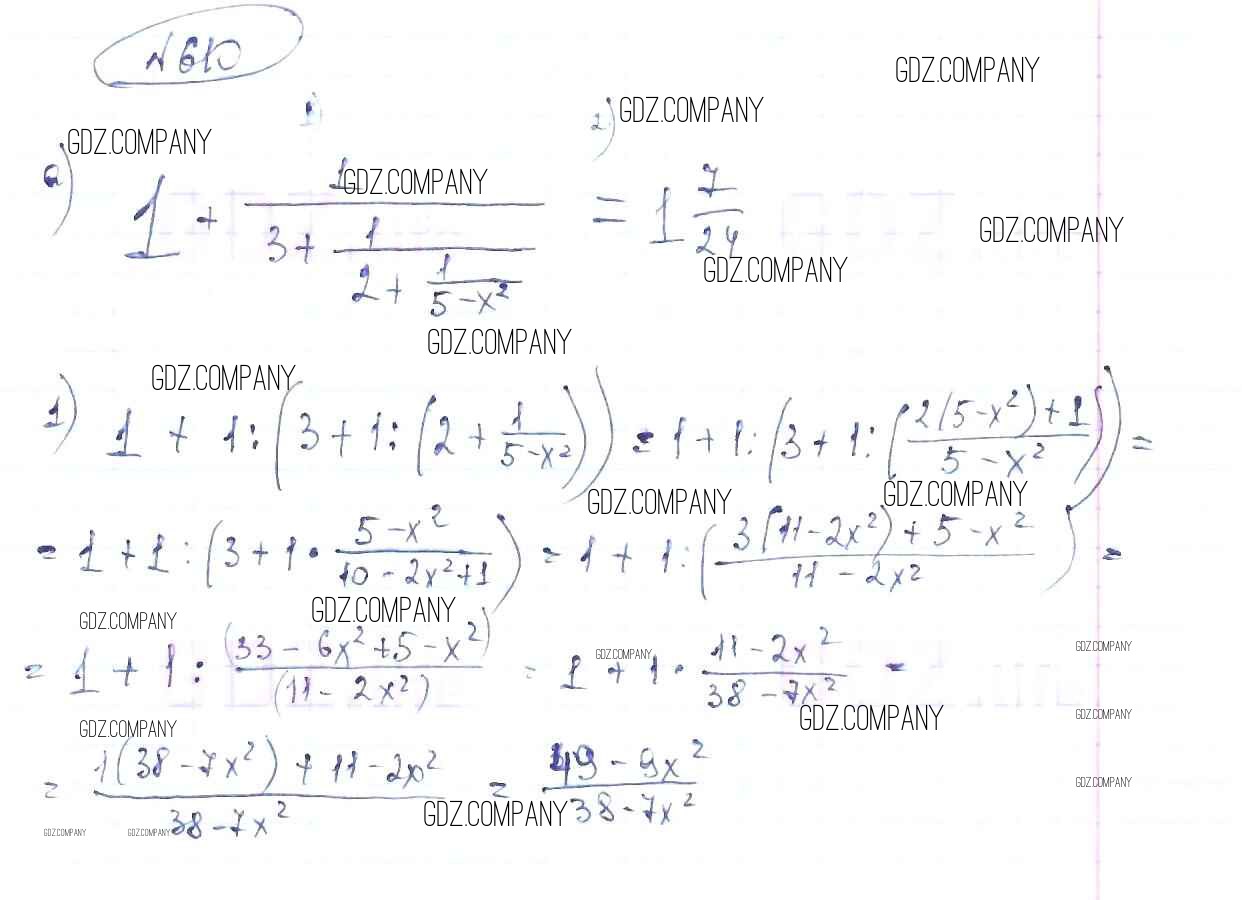 N 610
GDZ.COMPANY
1) 2) GDZ.COMPANY
а) GDZ.COMPANY
1 + 1/(3 + 1/(2 + 1/(5 - x²))) = 1 7/24
GDZ.COMPANY
GDZ.COMPANY
GDZ.COMPANY
GDZ.COMPANY
GDZ.COMPANY
1) 1 + 1 : (3 + 1 : (2 + 1/(5 - x²))) = 1 + 1 : (3 + 1 : ((2(5 - x²) + 1)/(5 - x²))) =
GDZ.COMPANY GDZ.COMPANY
= 1 + 1 : (3 + 1 · (5 - x²)/(10 - 2x² + 1)) = 1 + 1 : ((3(11 - 2x²) + 5 - x²)/(11 - 2x²)) =
GDZ.COMPANY GDZ.COMPANY
= 1 + 1 : (33 - 6x² + 5 - x²)/(11 - 2x²) = 1 + 1 · (11 - 2x²)/(38 - 7x²) =
GDZ.COMPANY GDZ.COMPANY
GDZ.COMPANY GDZ.COMPANY GDZ.COMPANY
= (1(38 - 7x²) + 11 - 2x²)/(38 - 7x²) = (49 - 9x²)/(38 - 7x²)
GDZ.COMPANY
GDZ.COMPANY GDZ.COMPANY GDZ.COMPANY